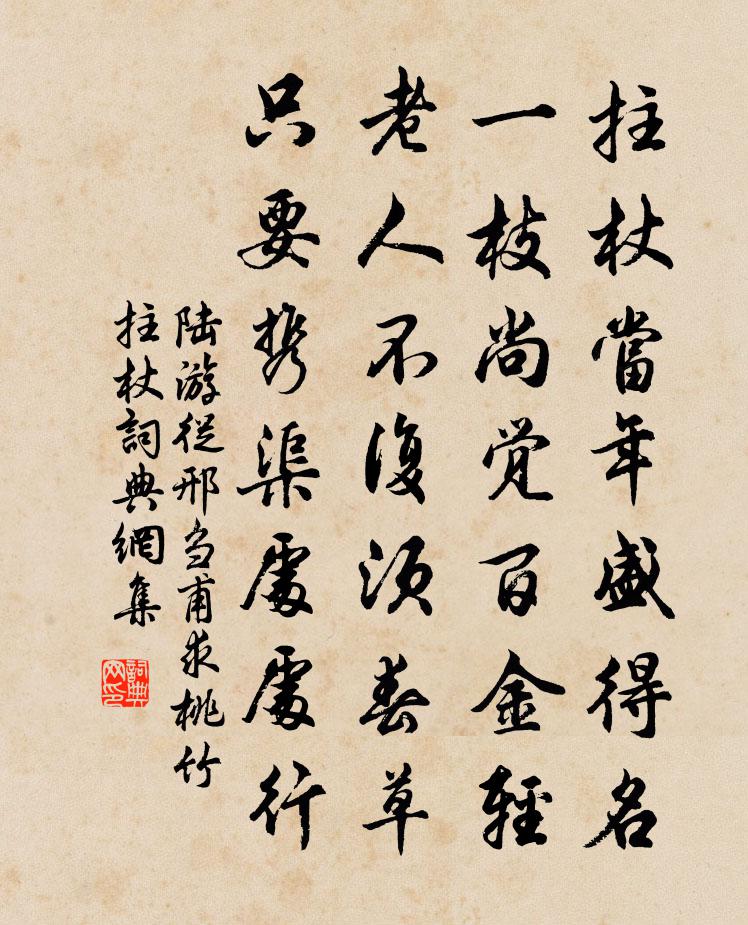 拄杖當年盛得名
一枝尚覚百金輕
老人不復須春草
只要携渠處處行
陆游從邢刍甫求桃竹
拄杖詞典網集
詞典网印